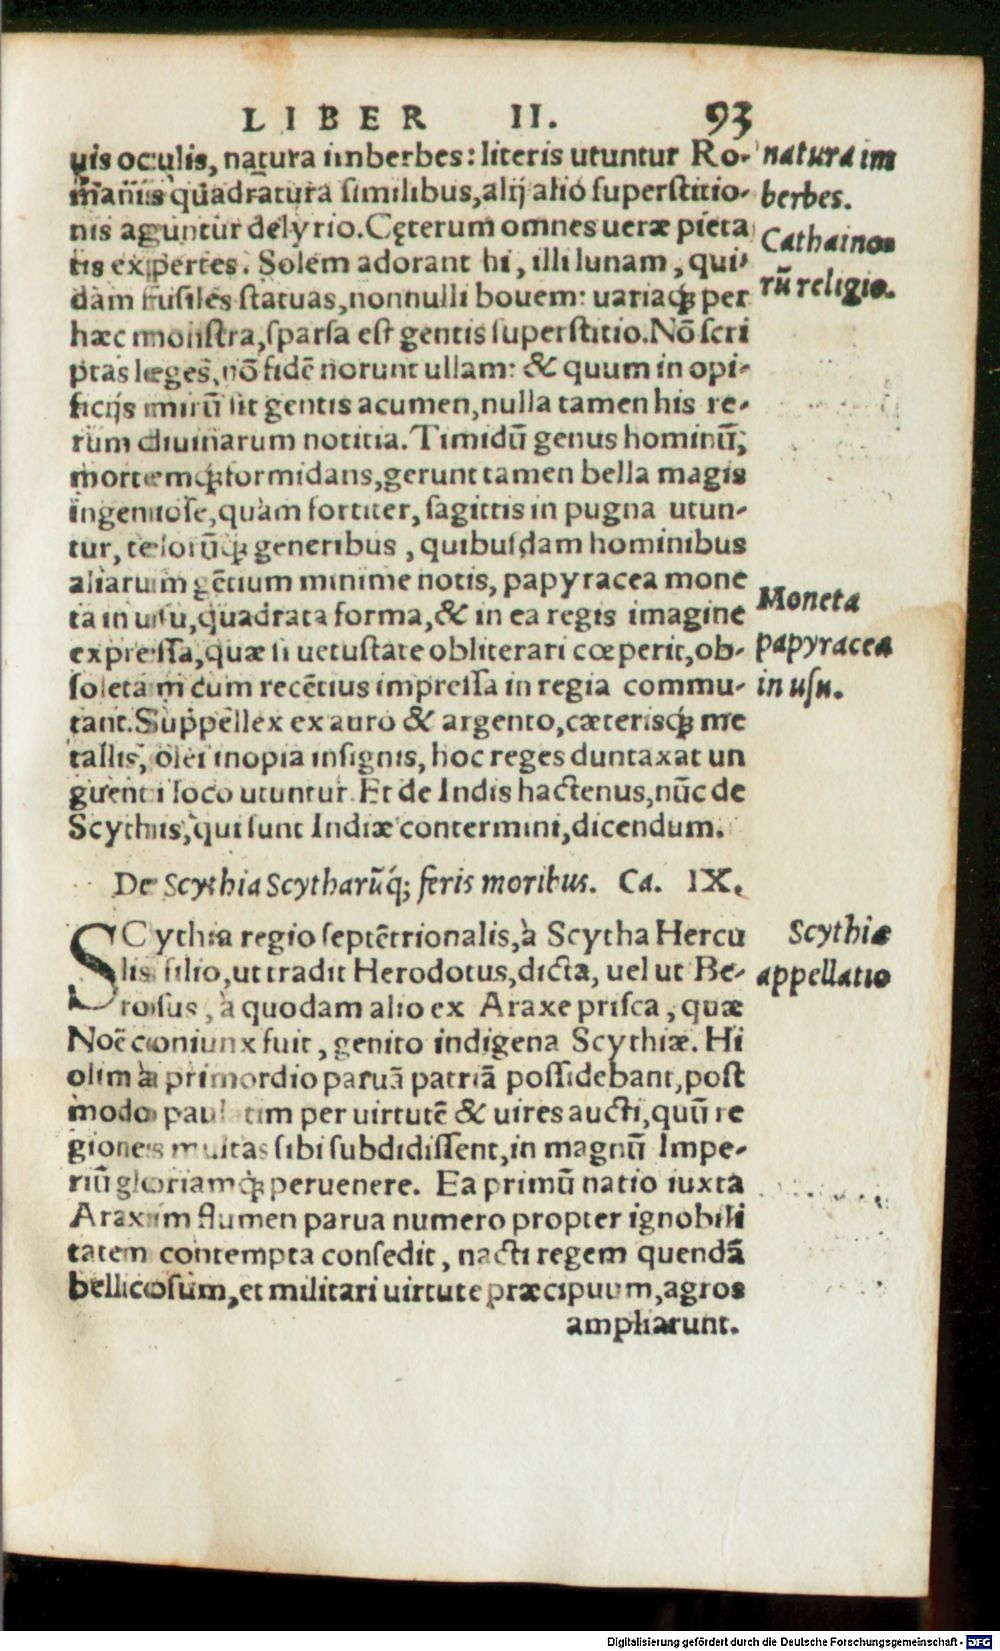 LIBER II. 93
uis oculis, natura imberbes: literis utuntur Ro-
manis quadratura similibus, alij alio superstitio-
nis aguntur delyrio. Cęterum omnes ueræ pieta
tis expertes. Solem adorant hi, illi lunam, qui-
dam fusiles statuas, nonnulli bouem: uariaq́; per
hæc monstra, sparsa est gentis superstitio. Nõ scri
ptas leges, nõ fidẽ norunt ullam: & quum in opi-
ficijs mirũ sit gentis acumen, nulla tamen his re-
rum diuinarum notitia. Timidũ genus hominũ,
mortemq́; formidans, gerunt tamen bella magis
ingeniose, quàm fortiter, sagittis in pugna utun-
tur, telorũq́; generibus, quibusdam hominibus
aliarum gẽtium minime notis, papyracea mone
ta in usu, quadrata forma, & in ea regis imagine
expressa, quæ si uetustate obliterari cœperit, ob-
soletam cum recẽtius impressa in regia commu-
tant. Suppellex ex auro & argento, cæterisq́; me
tallis, olei inopia insignis, hoc reges duntaxat un
guenti loco utuntur. Et de Indis hactenus, nũc de
Scythis, qui sunt Indiæ contermini, dicendum.
natura im
berbes.
Cathaino
rũ religio.
Moneta
papyracea
in usu.
De Scythia Scytharũq́; feris moribus. Ca. IX.
SCythia regio septẽtrionalis, à Scytha Hercu
lis filio, ut tradit Herodotus, dicta, uel ut Be-
rosus, à quodam alio ex Araxe prisca, quæ
Noë coniunx fuit, genito indigena Scythiæ. Hi
olim à primordio paruã patriã possidebant, post
modo paulatim per uirtutẽ & uires aucti, quũ re
giones multas sibi subdidissent, in magnũ Impe-
riũ gloriamq́; peruenere. Ea primũ natio iuxta
Araxim flumen parua numero propter ignobili
tatem contempta consedit, nacti regem quendã
bellicosum, et militari uirtute præcipuum, agros
ampliarunt.
Scythiæ
appellatio
Digitalisierung gefördert durch die Deutsche Forschungsgemeinschaft - DFG